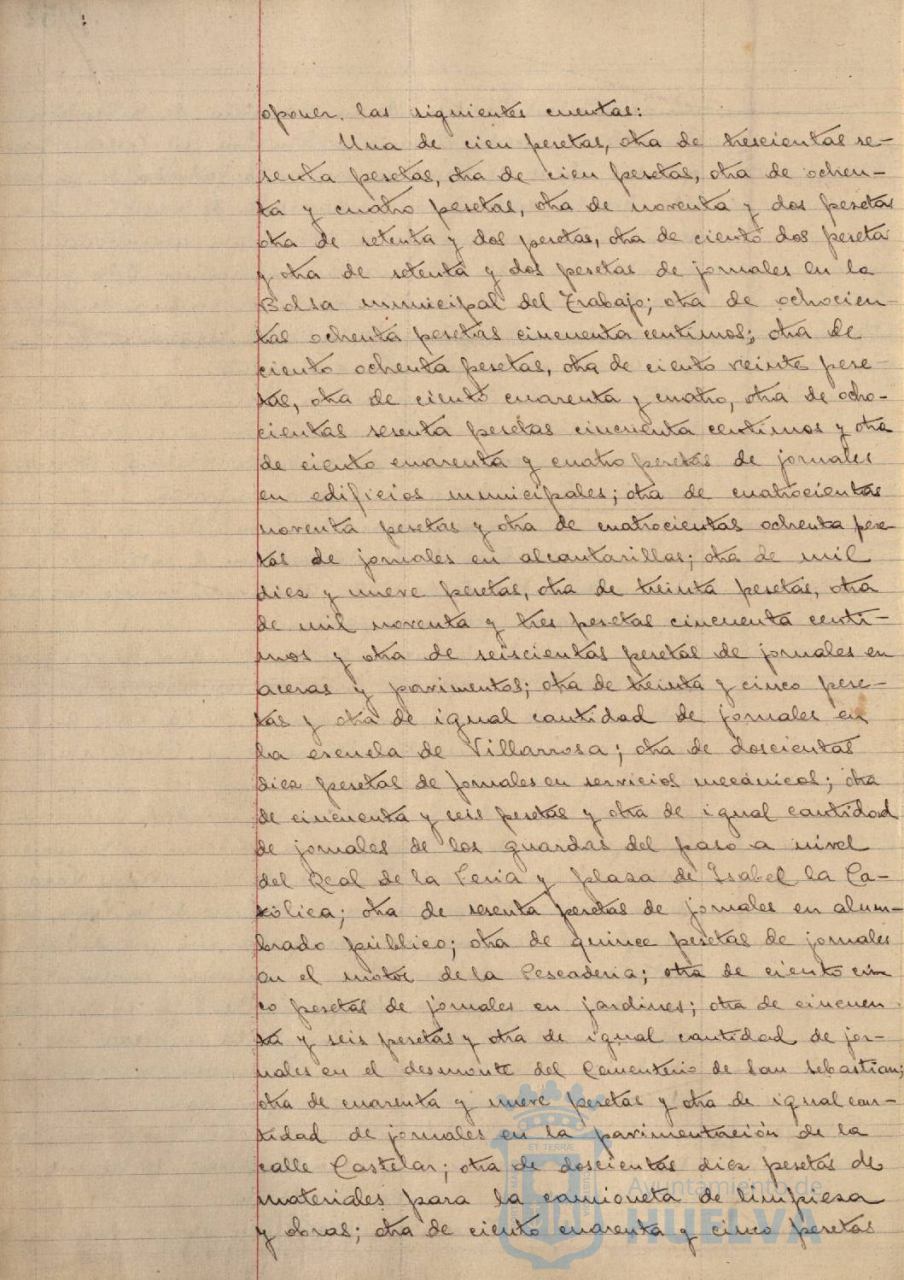 oponer las siguientes cuentas:
Una de cien pesetas, otra de trescientas se-
senta pesetas, otra de cien pesetas, otra de ochen-
ta y cuatro pesetas, otra de noventa y dos pesetas
otra de setenta y dos pesetas, otra de ciento dos peseta
y otra de setenta y dos pesetas de jornales en la
Bolsa municipal del Trabajo; otra de ochocien-
tas ochenta pesetas cincuenta centimos; otra de
ciento ochenta pesetas, otra de ciento veinte pese-
tas, otra de ciento cuarenta y cuatro, otra de ocho-
cientas sesenta pesetas cincuenta centimos y otra
de ciento cuarenta y cuatro pesetas de jornales
en edificios municipales; otra de cuatrocientas
noventa pesetas y otra de cuatrocientas ochenta pese-
tas de jornales en alcantarillas; otra de mil
diez y nueve pesetas, otra de treinta pesetas, otra
de mil noventa y tres pesetas cincuenta centi-
mos y otra de seiscientas pesetas de jornales en
aceras y pavimentos; otra de treinta y cinco pese-
tas y otra de igual cantidad de jornales en
la escuela de Villarrosa; otra de doscientas
diez pesetas de jornales en servicios mecánicos; otra
de cincuenta y seis pesetas y otra de igual cantidad
de jornales de los guardas del paso a nivel
del Real de la Feria y plaza de Isabel la Ca-
tólica; otra de sesenta pesetas de jornales en alum-
brado público; otra de quince pesetas de jornales
en el motor de la Pescaderia; otra de ciento cin
co pesetas de jornales en jardines; otra de cincuen
ta y seis pesetas y otra de igual cantidad de jor-
nales en el desmonte del Cementerio de San Sebastian;
otra de cuarenta y nueve pesetas y otra de igual can-
tidad de jornales en la pavimentación de la
calle Castelar; otra de doscientas diez pesetas de
materiales para la camioneta de limpiesa
y obras; otra de ciento cuarenta y cinco pesetas
Ayuntamiento de
HUELVA